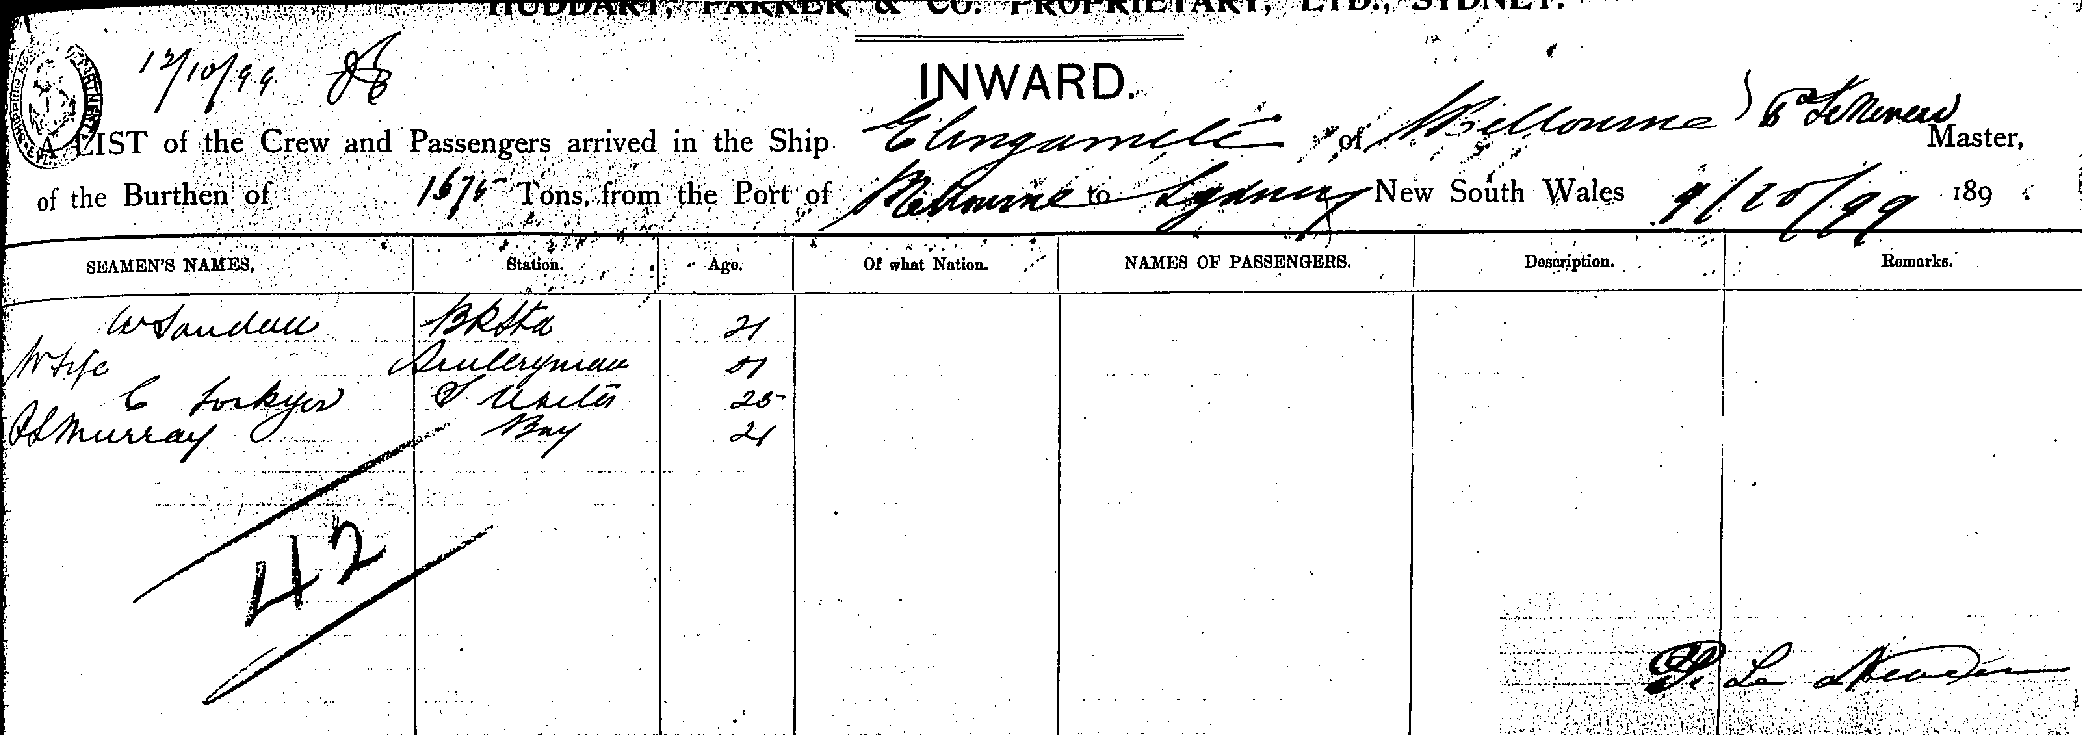 HUDDART, PARKER & CO. PROPRIETARY, LTD., SYDNEY.
12/10/99
INWARD.
A LIST of the Crew and Passengers arrived in the Ship Elingamite of Melbourne Le Neveu Master,
of the Burthen of 1675 Tons, from the Port of Melbourne to Sydney New South Wales 9/10/99 189 .
SEAMEN'S NAMES. Station. Age. Of what Nation. NAMES OF PASSENGERS. Description. Remarks.
W Sandall 21
W Fife 51
C Lockyer 25
Murray Boy 21
42
P. Le Neveu